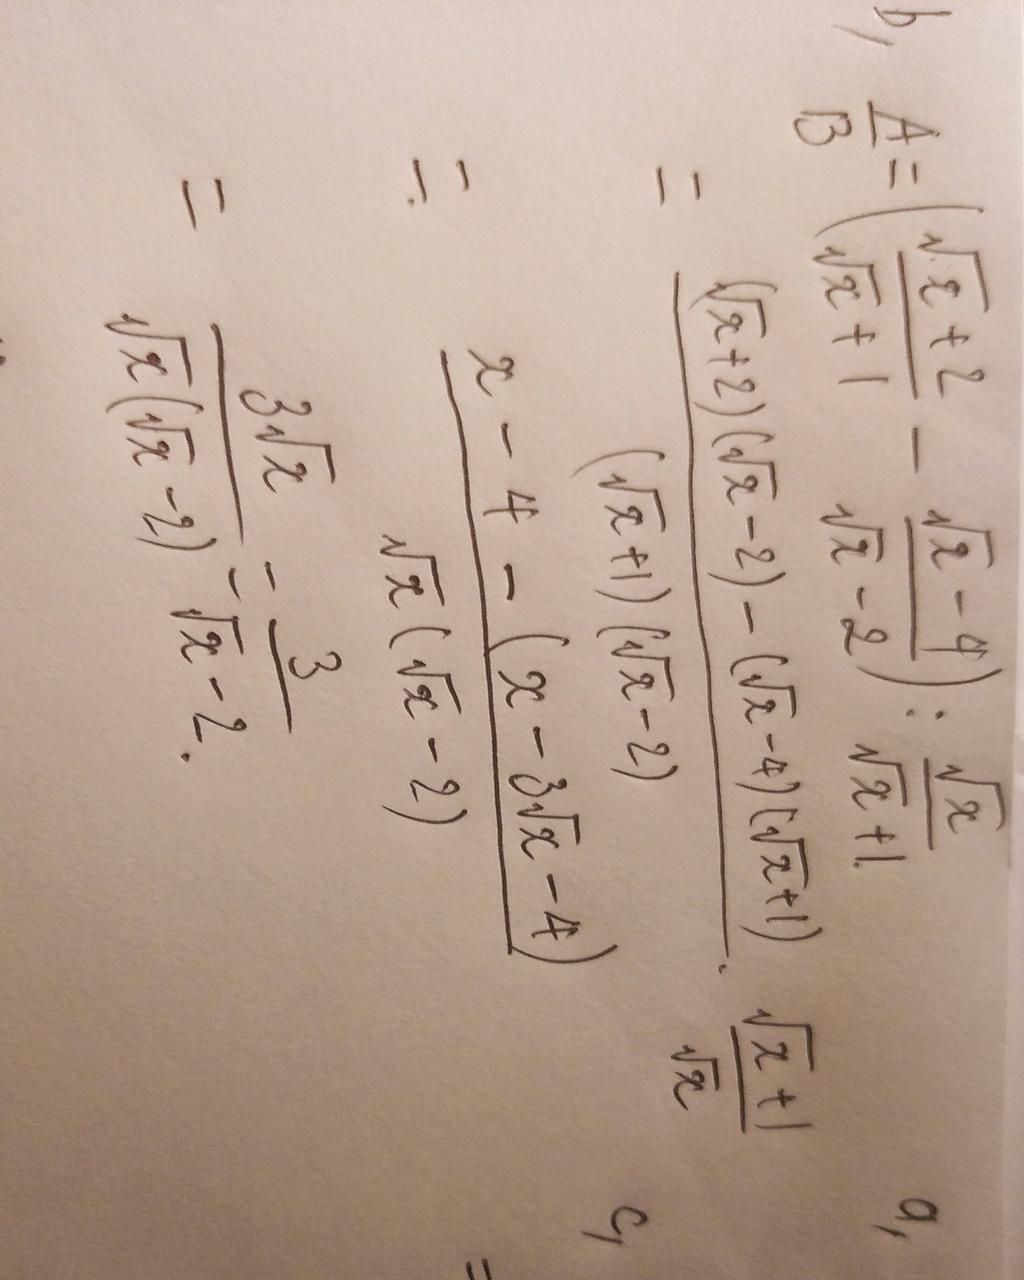 b, A/B = ((√x+2)/(√x+1) - (√x-4)/(√x-2)) : √x/(√x+1)
= ((√x+2)(√x-2) - (√x-4)(√x+1))/((√x+1)(√x-2)) . (√x+1)/√x
= (x - 4 - (x - 3√x - 4))/(√x(√x-2))
= 3√x/(√x(√x-2)) = 3/(√x-2).
a,
c,
=